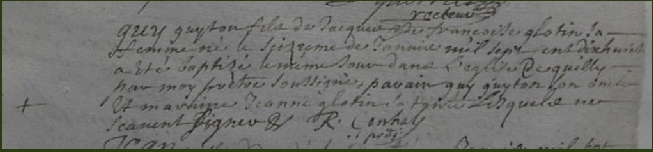 recteur
guy guyton fils de Jacques et de francoise glotin sa
femme né le seizieme de Janvier mil sept cent dixhuict
a eté baptisé le meme Jour dans L'eglise de quilly
par moy prêtre soussigné, parain guy guyton son oncle
Et maraine Jeanne glotin sa tante Lesquels ne
scavent Signer R. Conhas
Jean